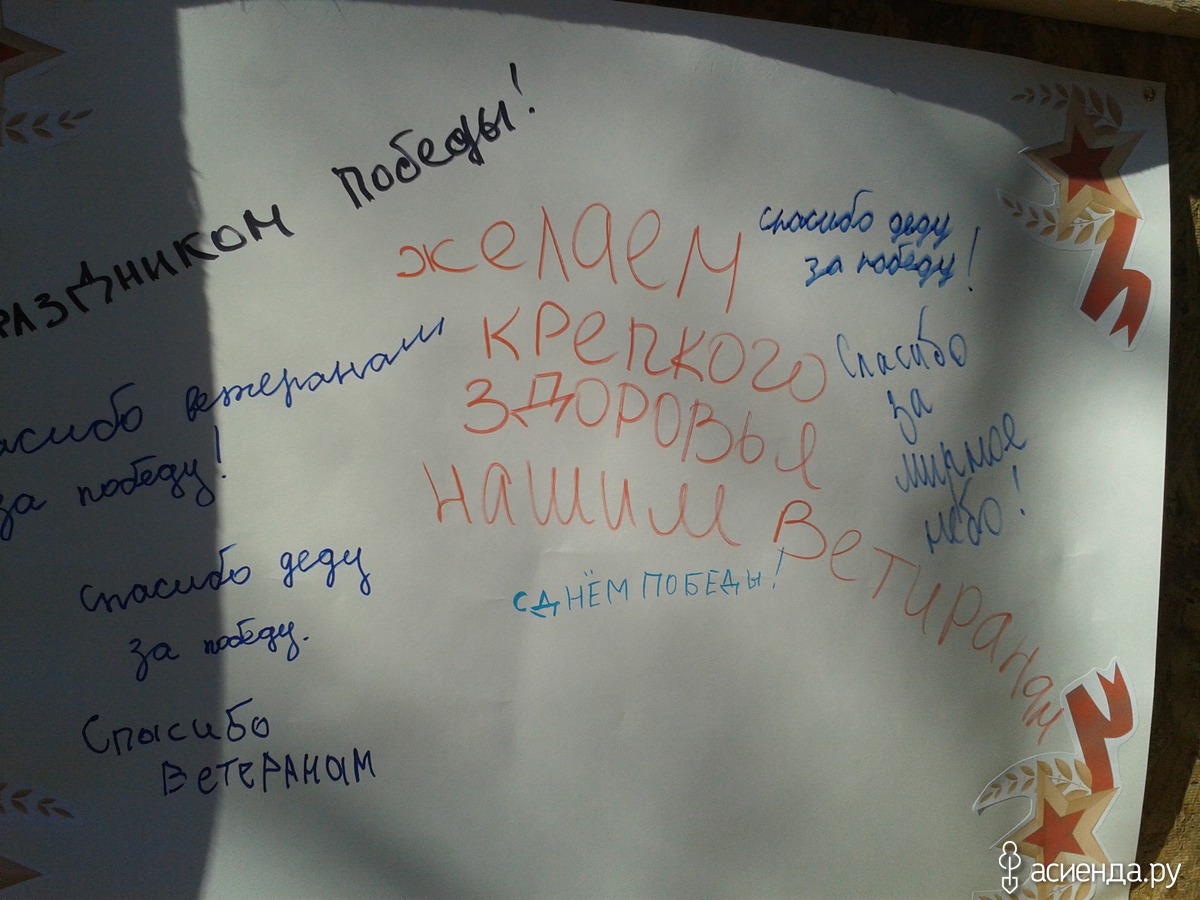 РАЗДНИКОМ ПОБЕДЫ!
асибо ветеранам
за победу!
Спасибо деду
за победу.
Спасибо
ВЕТЕРАНАМ
желаем
крепкого
здоровья
нашим Ветиранам
С ДНЁМ ПОБЕДЫ!
спасибо деду
за победу!
Спасибо
за
мирное
небо!
асиенда.ру